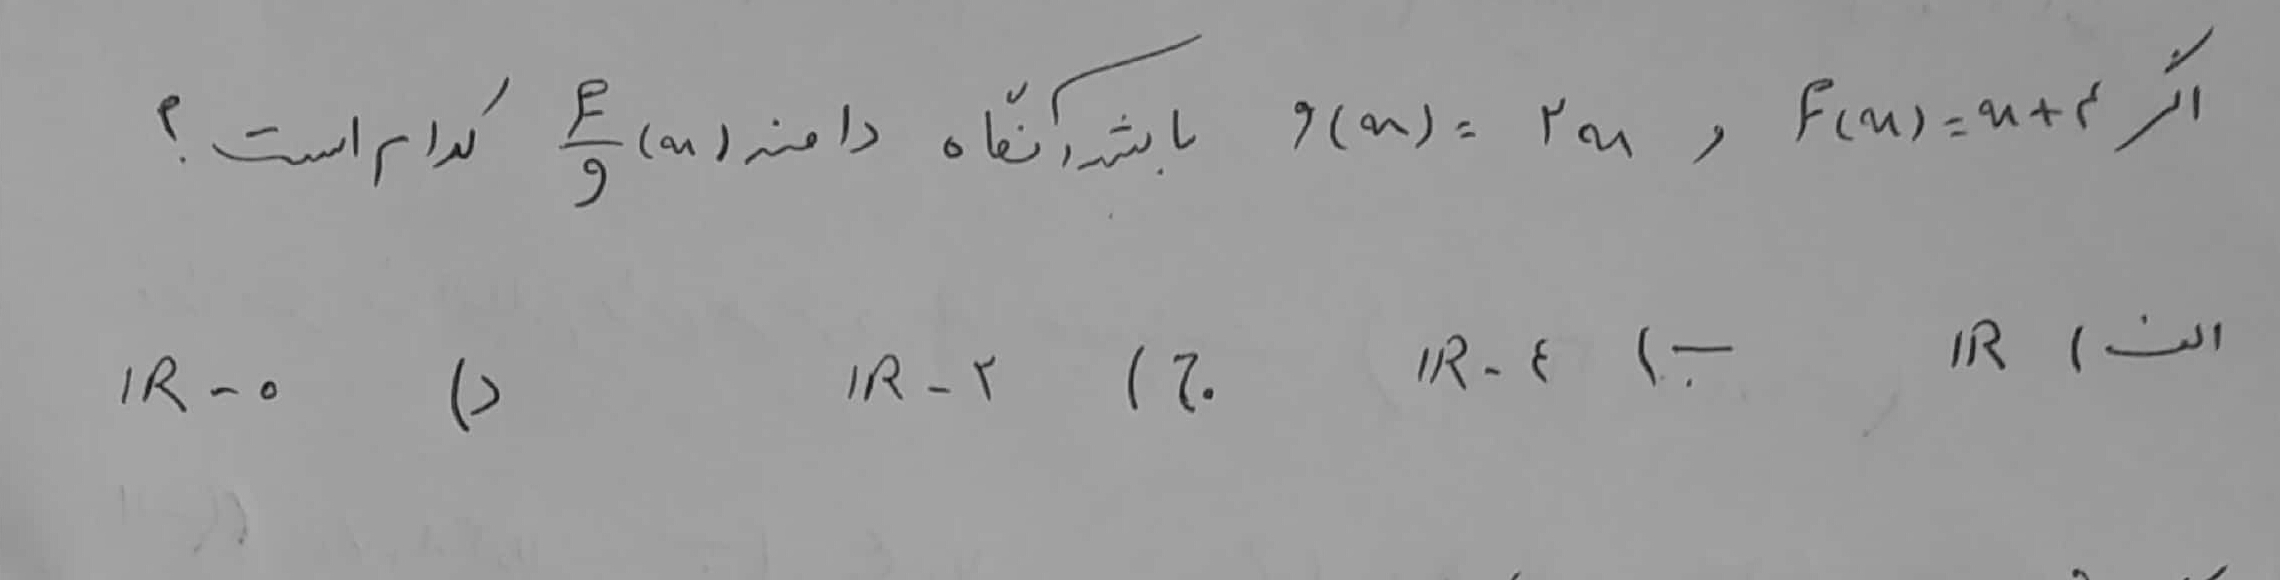 اگر f(x)=x+۴ و g(x)=۲x باشد، آنگاه دامنه f/g (x) کدام است؟
الف) IR ب) IR-٤ ج) IR-۲ د) IR-۰